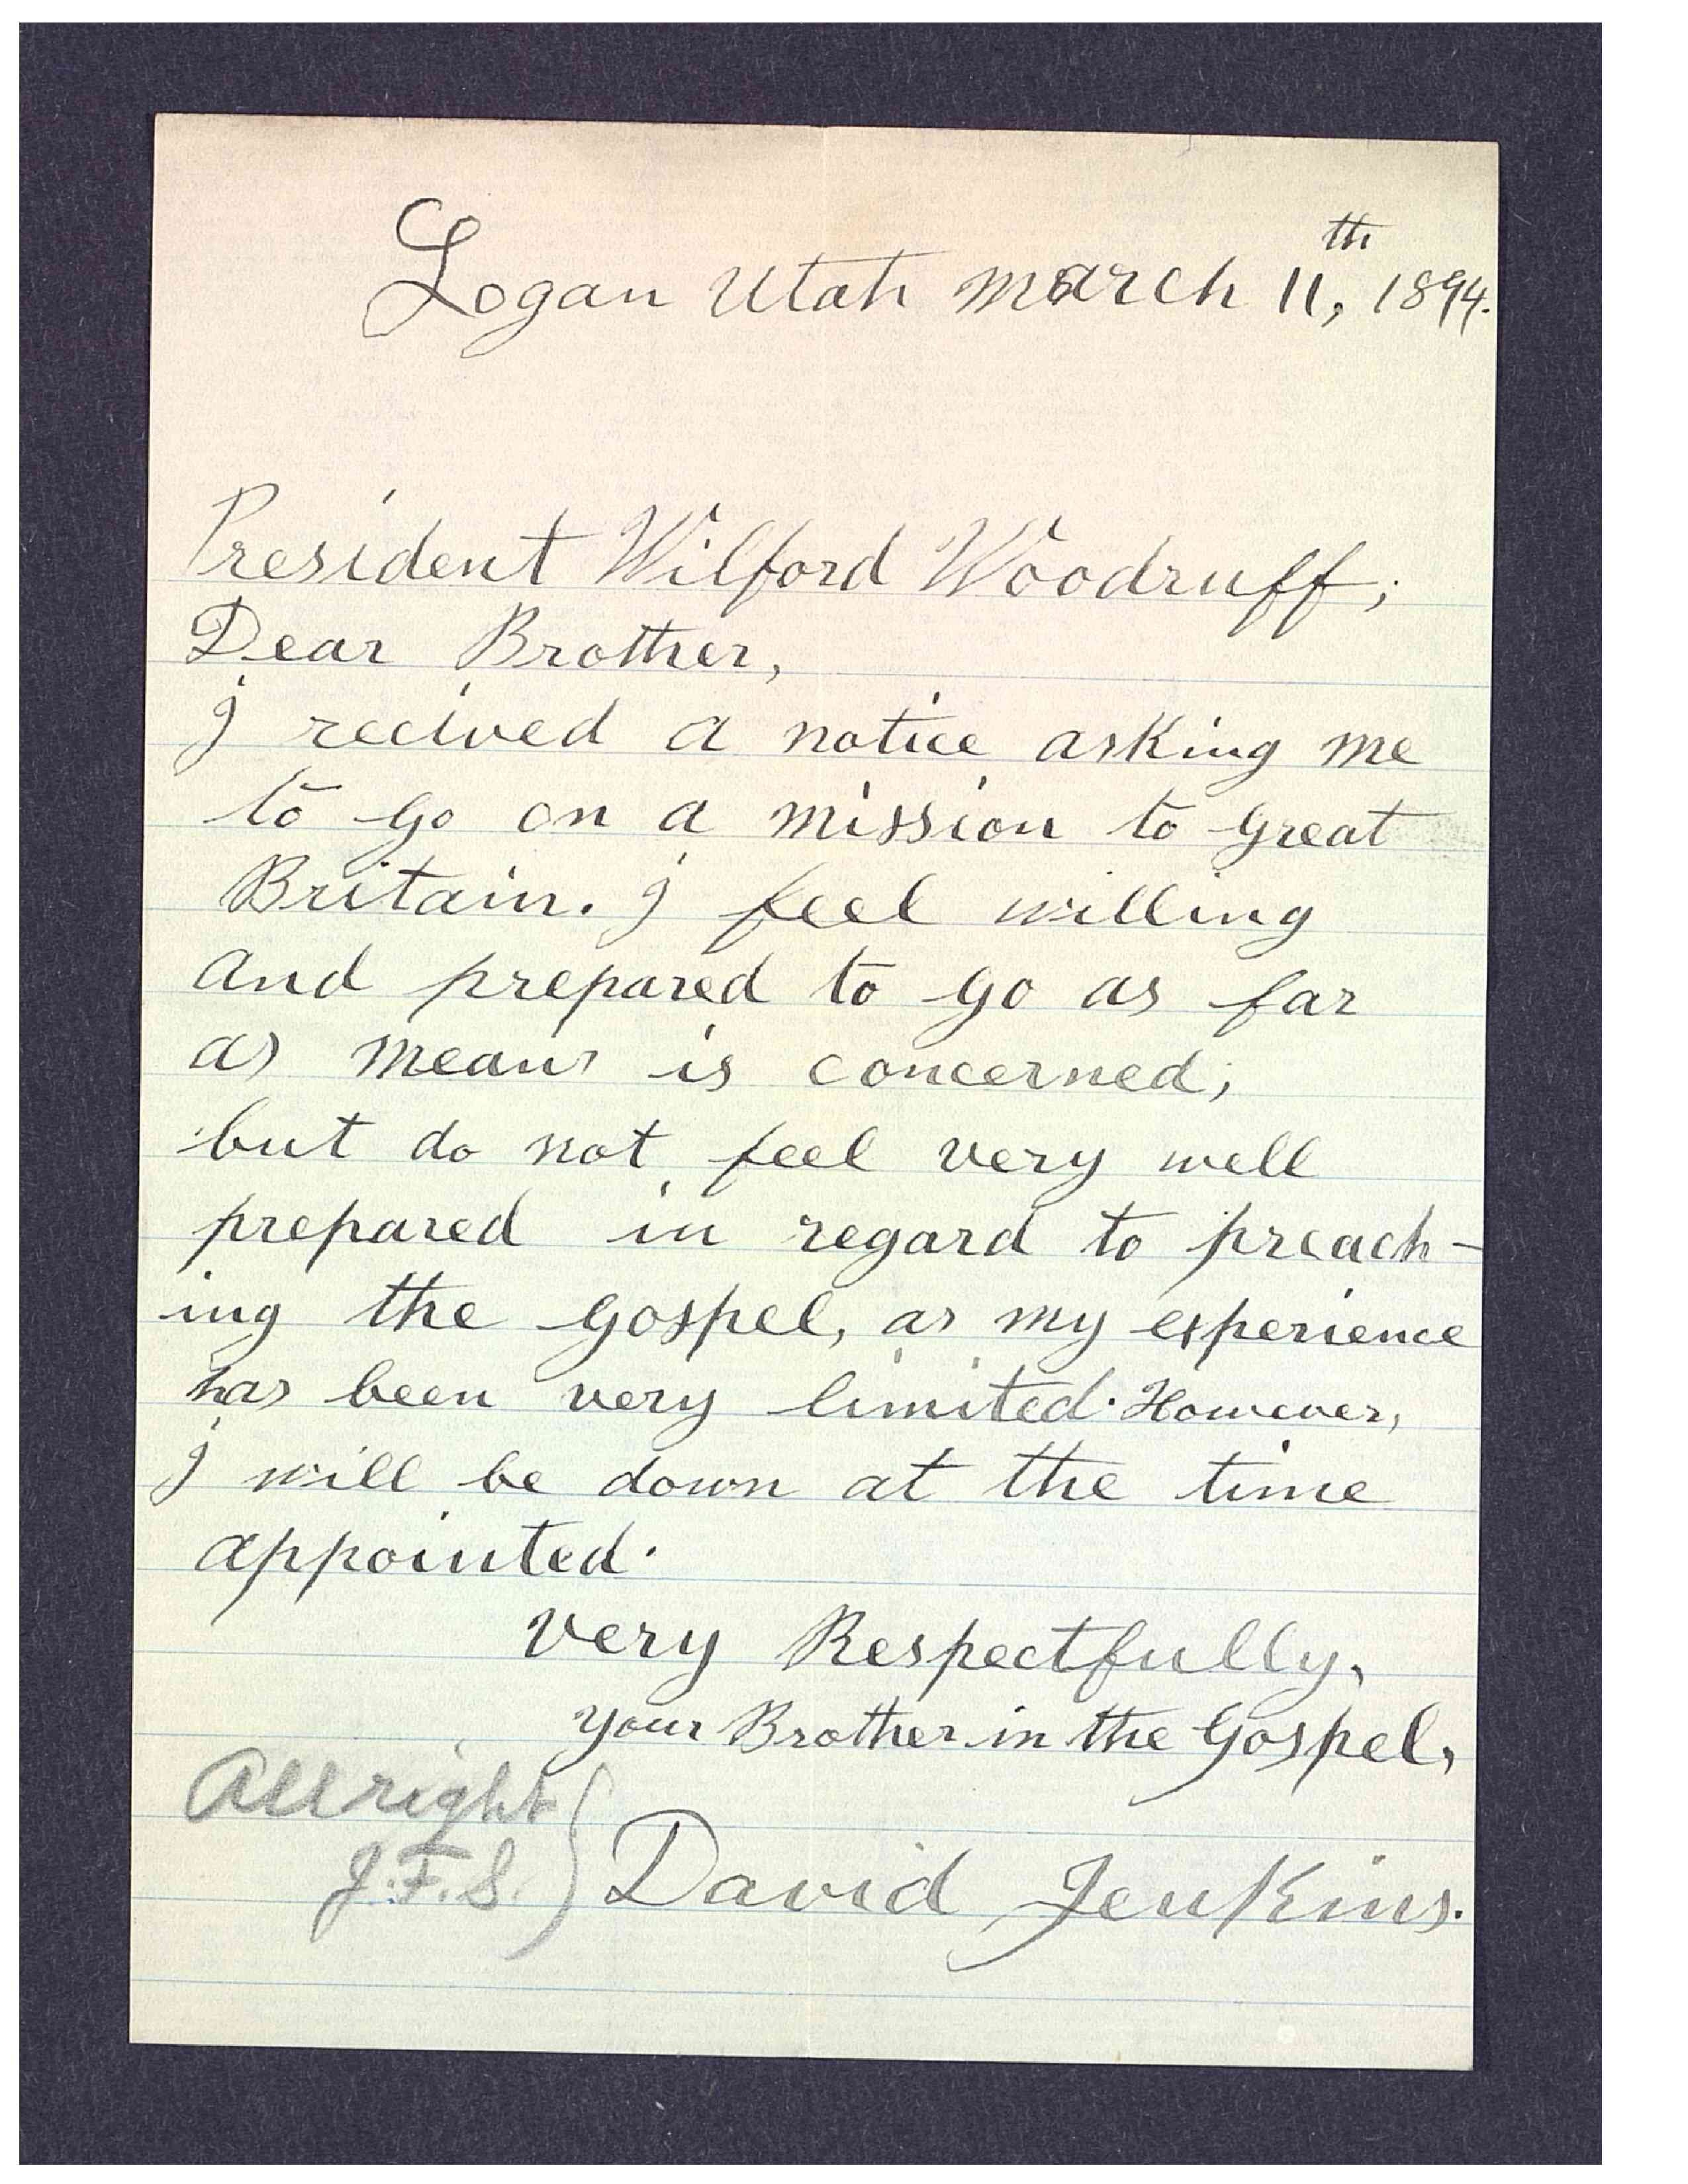 Logan Utah March 11th, 1894.
President Wilford Woodruff;
Dear Brother,
I recived a notice asking me
to go on a mission to great
Britain. I feel willing
and prepared to go as far
as means is concerned;
but do not feel very well
prepared in regard to preach-
ing the gospel, as my experience
has been very limited. However,
I will be down at the time
appointed.
Very Respectfully,
your Brother in the Gospel,
All right
J.F.S. } David Jenkins.